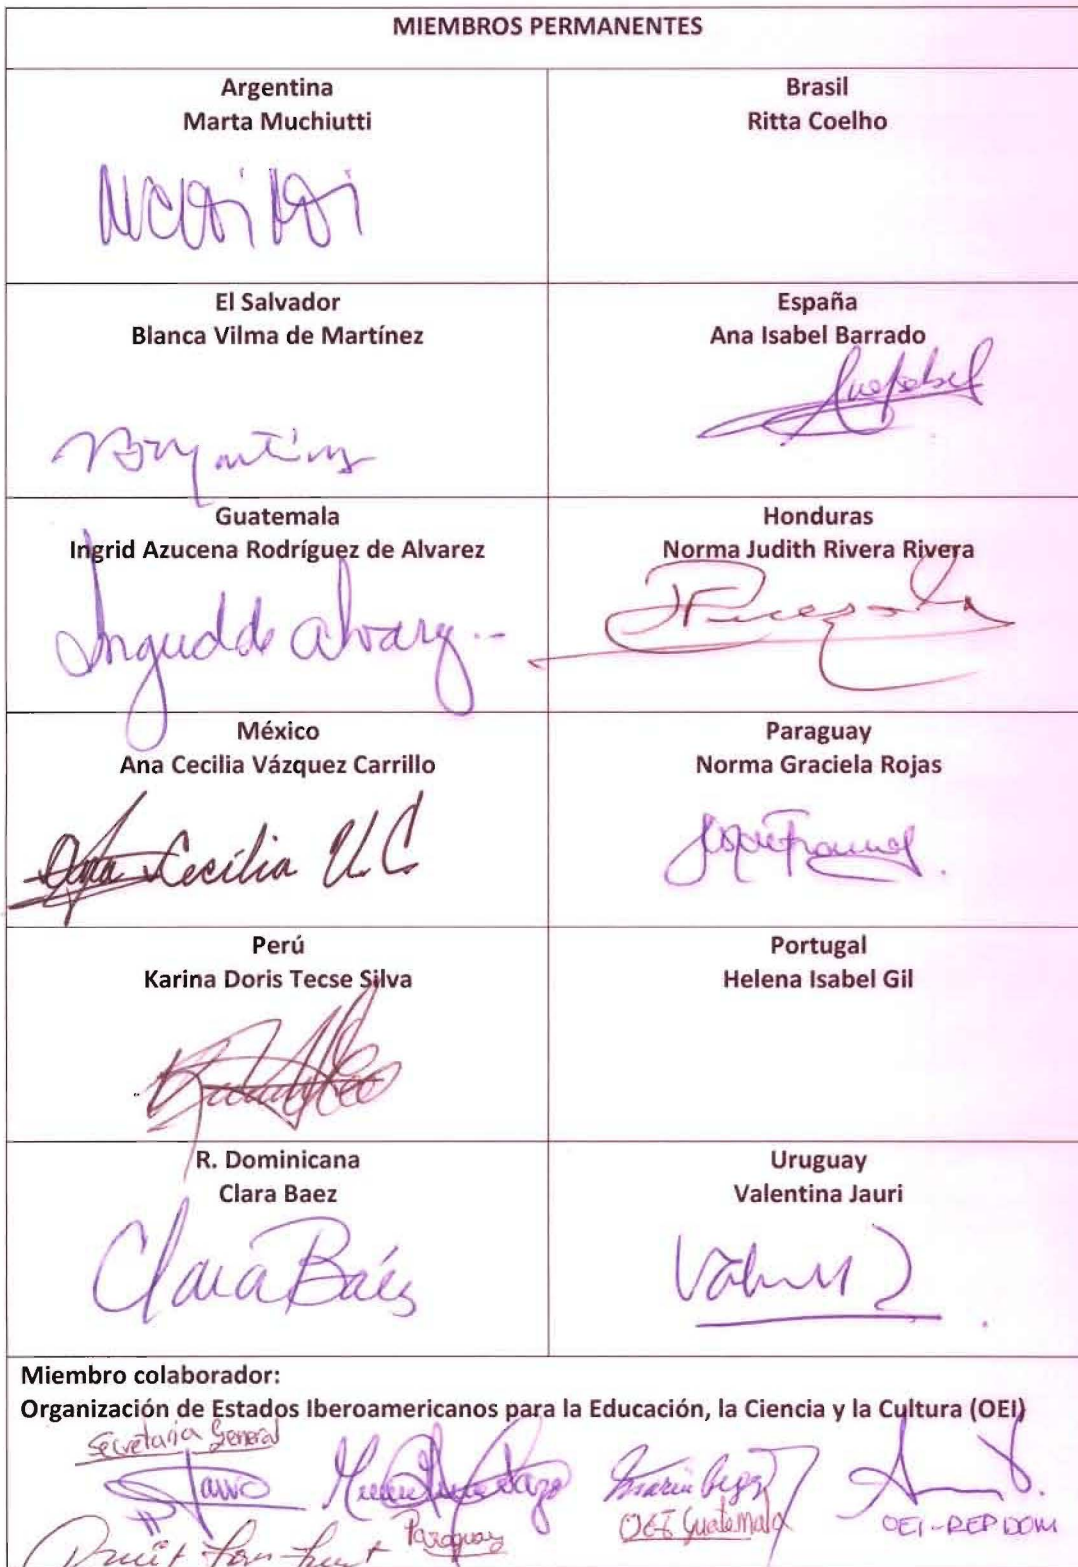 MIEMBROS PERMANENTES
Argentina
Marta Muchiutti
Brasil
Ritta Coelho
El Salvador
Blanca Vilma de Martínez
España
Ana Isabel Barrado
Guatemala
Ingrid Azucena Rodríguez de Alvarez
Ingrid de Alvarez
Honduras
Norma Judith Rivera Rivera
México
Ana Cecilia Vázquez Carrillo
Ana Cecilia V.C
Paraguay
Norma Graciela Rojas
Perú
Karina Doris Tecse Silva
Portugal
Helena Isabel Gil
R. Dominicana
Clara Baez
Clara Báez
Uruguay
Valentina Jauri
Miembro colaborador:
Organización de Estados Iberoamericanos para la Educación, la Ciencia y la Cultura (OEI)
Secretaria General
Paraguay
OEI Guatemala
OEI-REP DOM